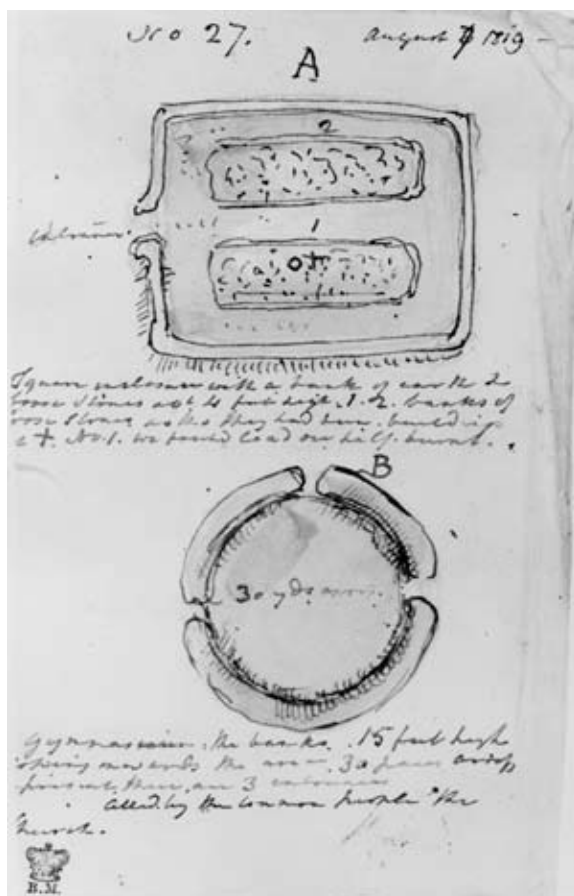 No 27. August 7 1819 -
A
2
Entrance. 1
0+
Square inclosure with a bank of earth &
loose stones abt 4 feet high. 1. 2. banks of
loose stones as tho they had been buildings
at +. No. 1. we found lead ore half burnt.
B
30 yds across.
Gymnasium. the banks. 15 feet high
sloping inwards the area 30 paces across
present there are 3 entrances
called by the common people "the
church.
B.M.